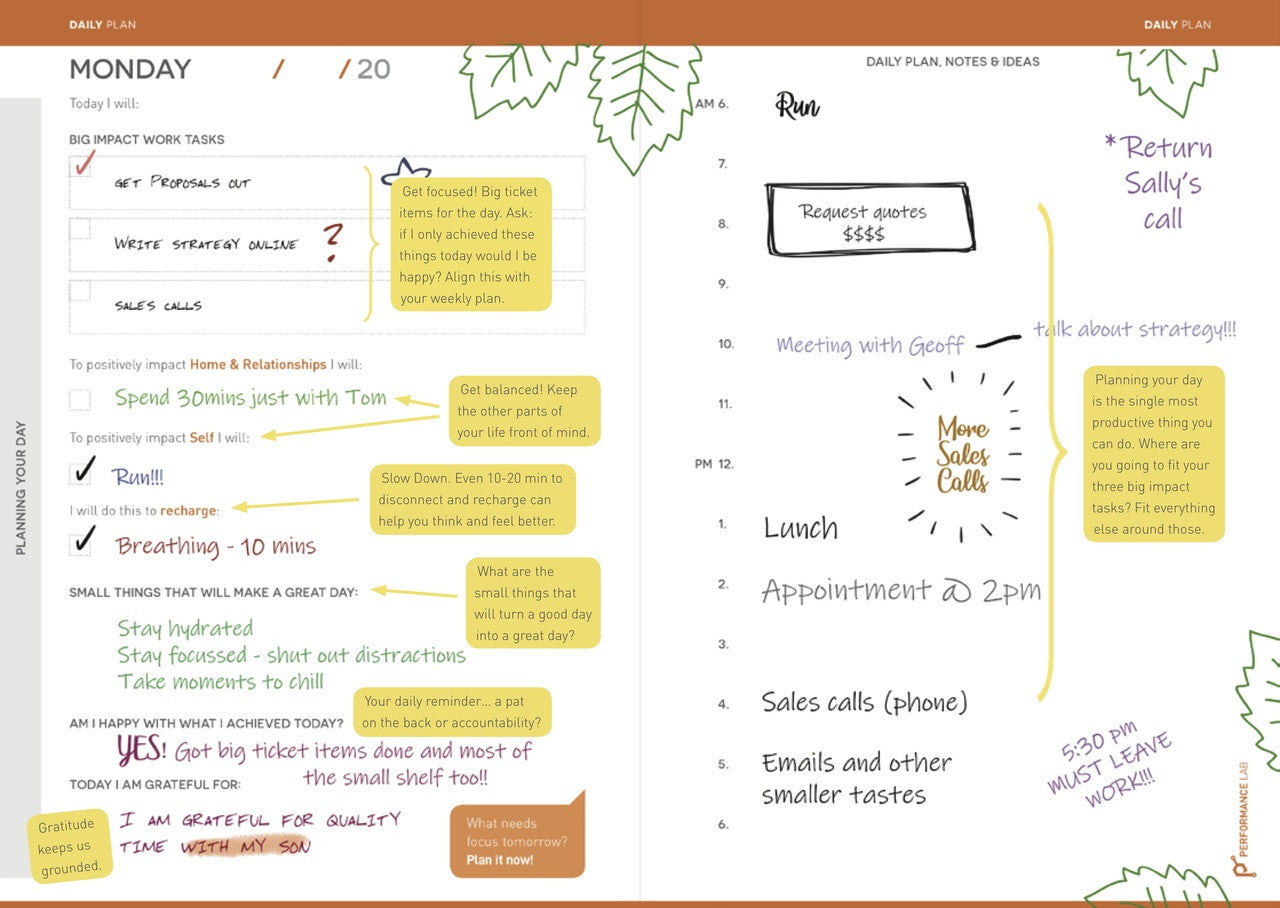 DAILY PLAN
MONDAY / / 20
Today I will:
BIG IMPACT WORK TASKS
GET PROPOSALS OUT
WRITE STRATEGY ONLINE ?
SALES CALLS
Get focused! Big ticket
items for the day. Ask:
if I only achieved these
things today would I be
happy? Align this with
your weekly plan.
To positively impact Home & Relationships I will:
Spend 30mins just with Tom
Get balanced! Keep
the other parts of
your life front of mind.
To positively impact Self I will:
Run!!!
Slow Down. Even 10-20 min to
disconnect and recharge can
help you think and feel better.
I will do this to recharge:
Breathing - 10 mins
What are the
small things that
will turn a good day
into a great day?
SMALL THINGS THAT WILL MAKE A GREAT DAY:
Stay hydrated
Stay focussed - shut out distractions
Take moments to chill
Your daily reminder... a pat
on the back or accountability?
AM I HAPPY WITH WHAT I ACHIEVED TODAY?
YES! Got big ticket items done and most of
the small shelf too!!
TODAY I AM GRATEFUL FOR:
I AM GRATEFUL FOR QUALITY
TIME WITH MY SON
Gratitude
keeps us
grounded.
What needs
focus tomorrow?
Plan it now!
PLANNING YOUR DAY
DAILY PLAN
DAILY PLAN, NOTES & IDEAS
AM 6. Run
7.
*Return
Sally's
call
8. Request quotes
$$$$
9.
10. Meeting with Geoff — talk about strategy!!!
11.
More
Sales
Calls
PM 12.
Planning your day
is the single most
productive thing you
can do. Where are
you going to fit your
three big impact
tasks? Fit everything
else around those.
1. Lunch
2. Appointment @ 2pm
3.
4. Sales calls (phone)
5. Emails and other
smaller tastes
5:30 pm
MUST LEAVE
WORK!!!
6.
PERFORMANCE LAB